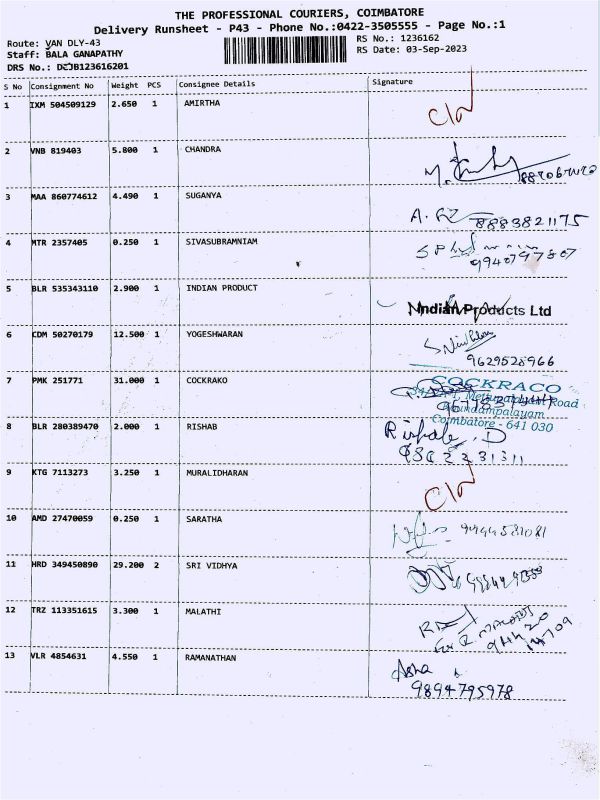 THE PROFESSIONAL COURIERS, COIMBATORE
Delivery Runsheet - P43 - Phone No.:0422-3505555 - Page No.:1
Route: VAN DLY-43
Staff: BALA GANAPATHY
DRS No.: DCJB123616201
RS No.: 1236162
RS Date: 03-Sep-2023
S No Consignment No Weight PCS Consignee Details Signature
1 IXM 504509129 2.650 1 AMIRTHA
2 VNB 819403 5.800 1 CHANDRA
3 MAA 860774612 4.490 1 SUGANYA
8883821175
4 MTR 2357405 0.250 1 SIVASUBRAMNIAM
5 BLR 535343110 2.900 1 INDIAN PRODUCT
Indian Products Ltd
6 CDM 50270179 12.500 1 YOGESHWARAN
9629528966
7 PMK 251771 31.000 1 COCKRAKO
COCKRACO
Road
Coimbatore - 641 030
8 BLR 280389470 2.000 1 RISHAB
Rishab. D
9 KTG 7113273 3.250 1 MURALIDHARAN
10 AMD 27470059 0.250 1 SARATHA
11 HRD 349450890 29.200 2 SRI VIDHYA
12 TRZ 113351615 3.300 1 MALATHI
13 VLR 4854631 4.550 1 RAMANATHAN
Asha
9894795978